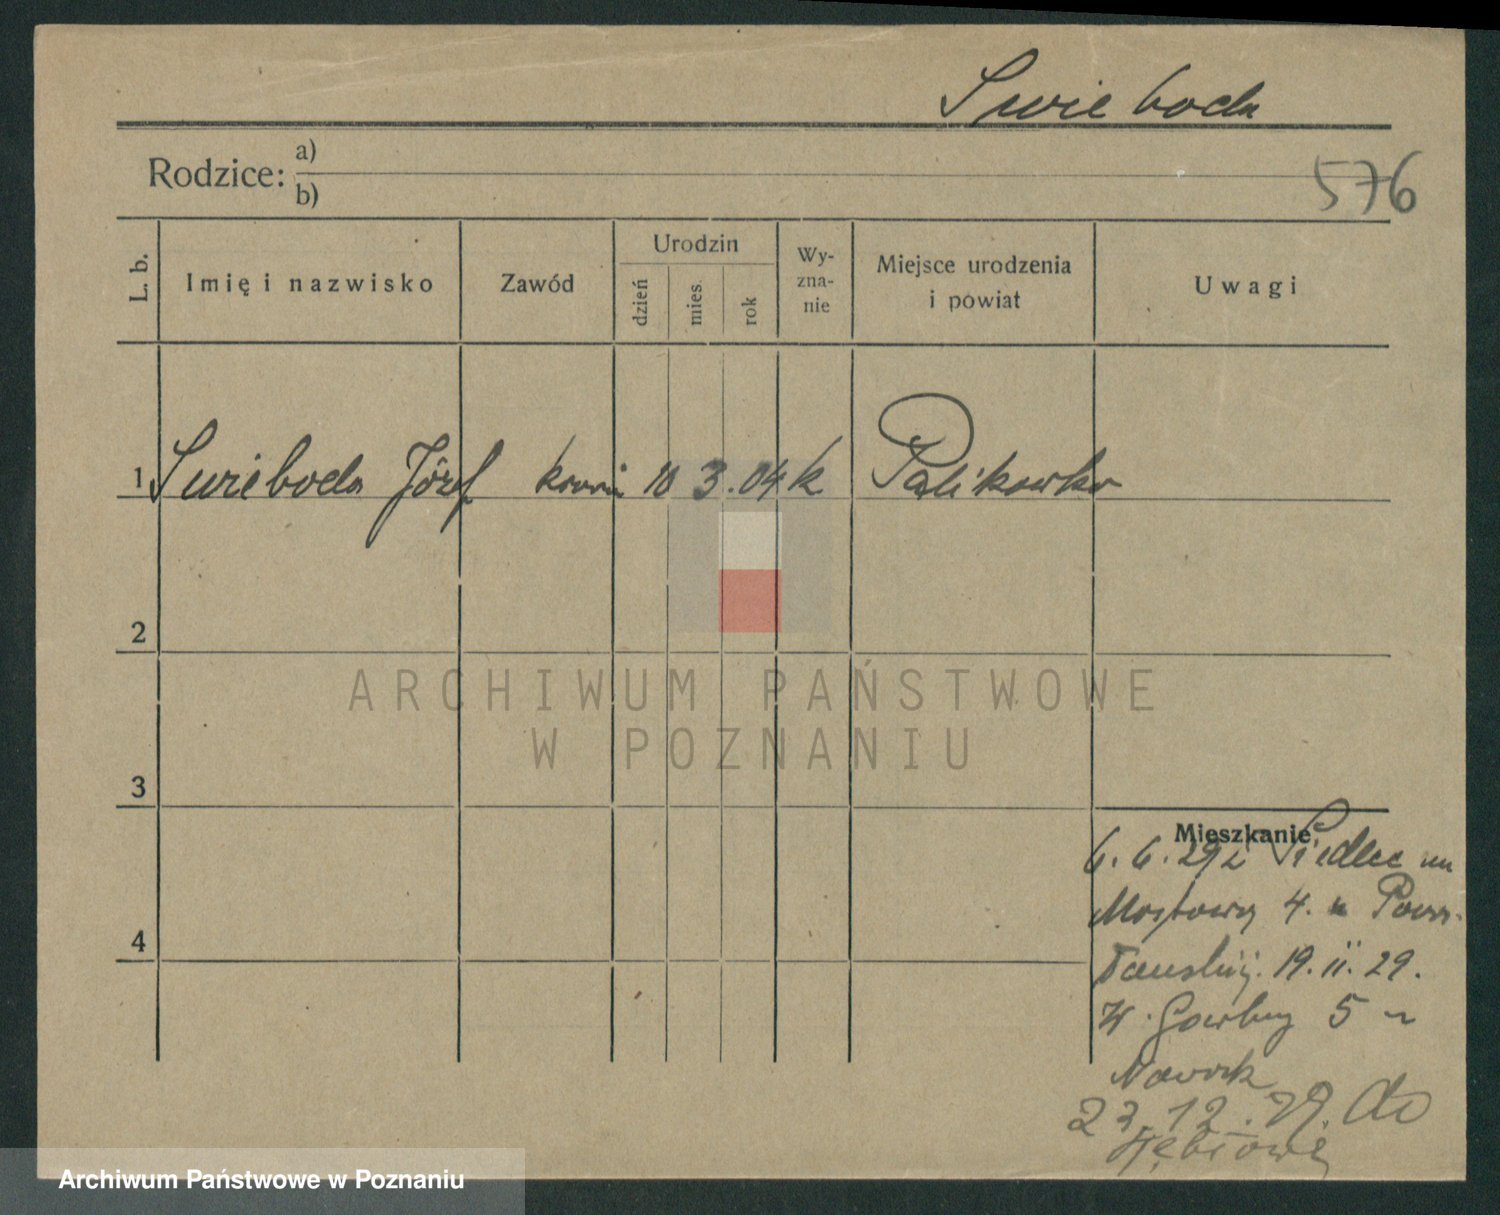 Swieboda
Rodzice: a)
b)
576
L. b.
Imię i nazwisko
Zawód
Urodzin
dzień
mies.
rok
Wy-
zna-
nie
Miejsce urodzenia
i powiat
Uwagi
1 Swieboda Józef 10 3. 04 k Palikówka
2
ARCHIWUM PAŃSTWOWE
W POZNANIU
3
4
Mieszkanie
6. 6. 29 z Siedlec
Mostowa 4.
19. 11. 29.
5
Nowak
12. 29. do
Archiwum Państwowe w Poznaniu